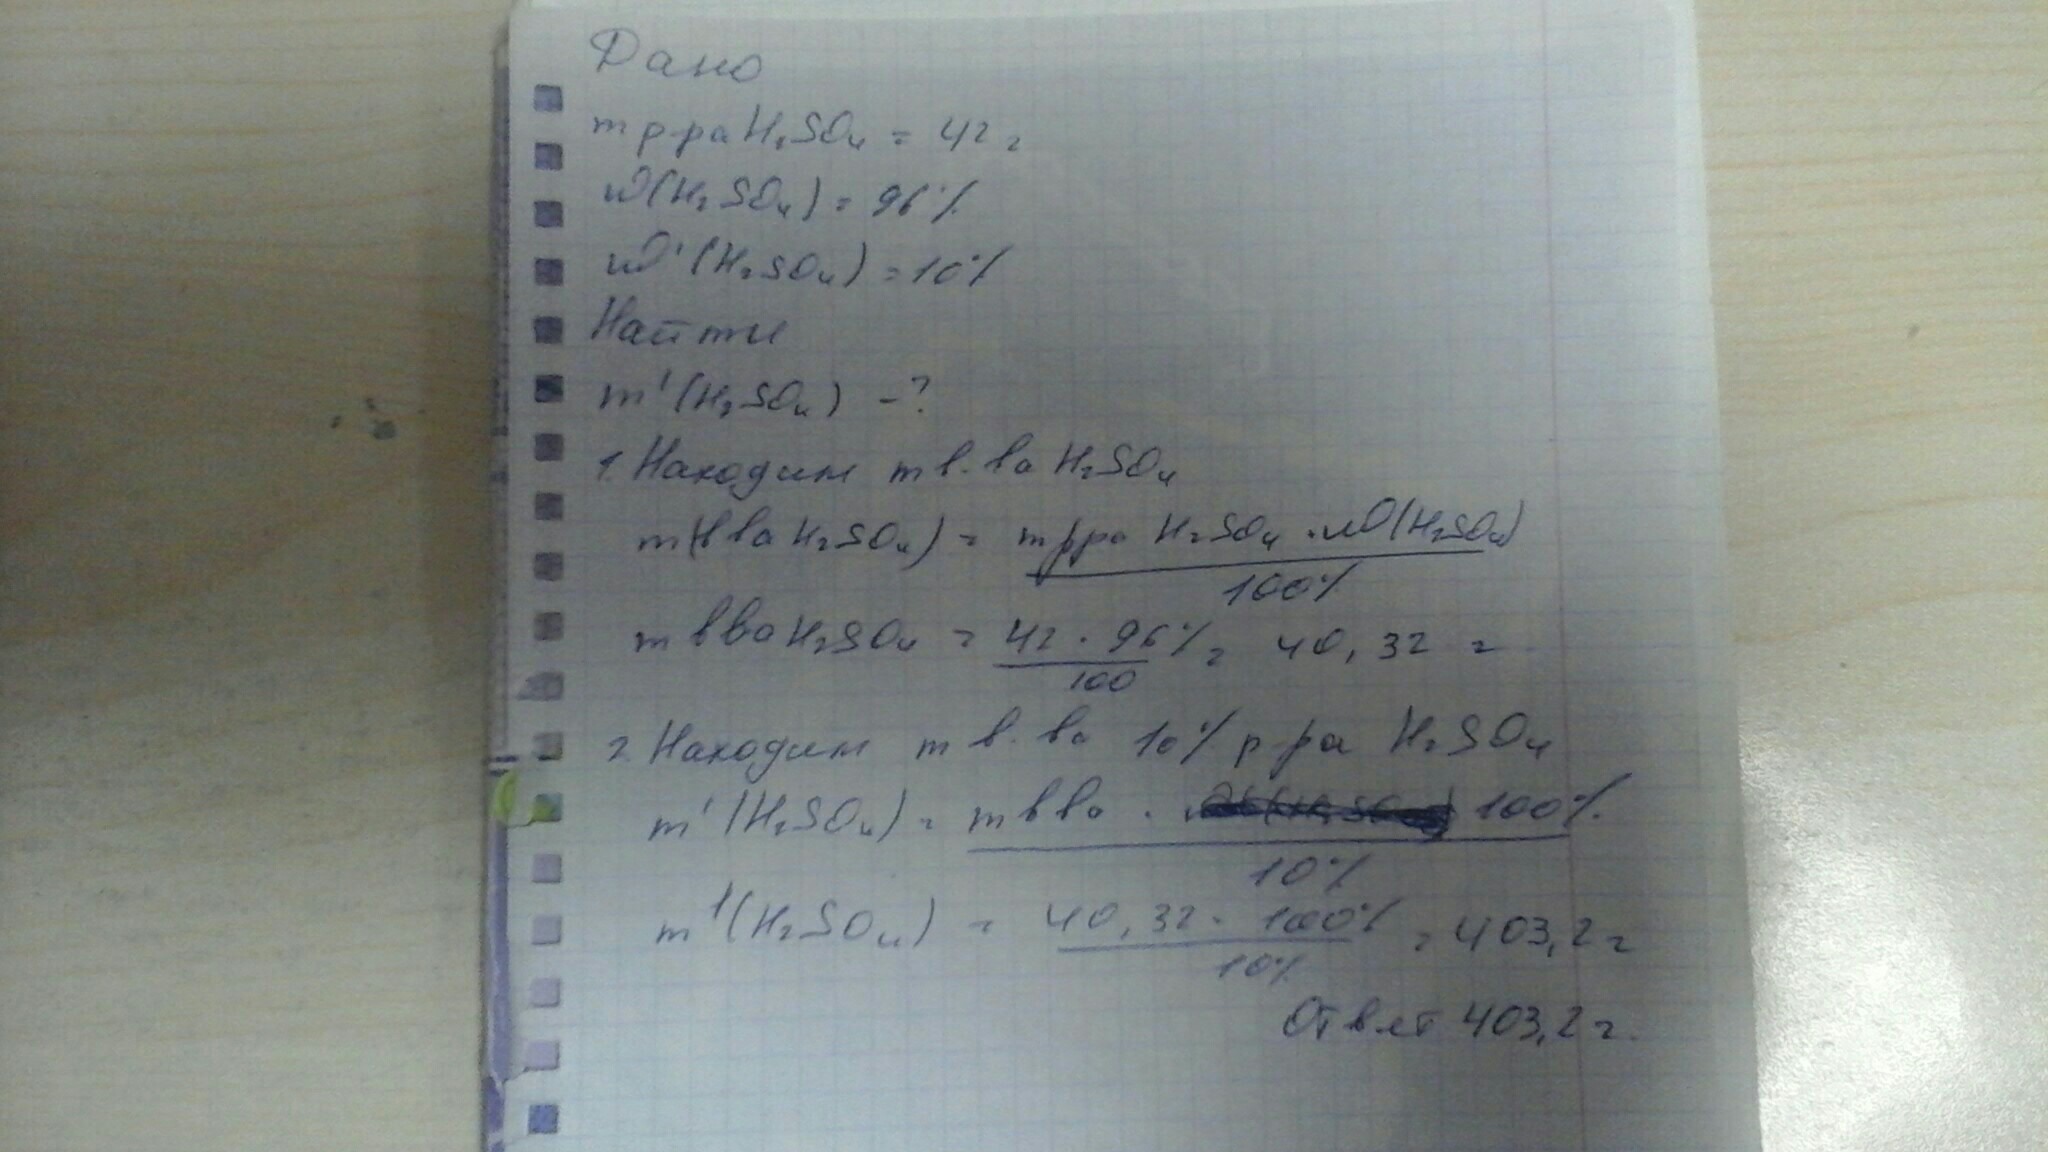 Дано
m р-ра H₂SO₄ = 42 г
ω(H₂SO₄) = 96%
ω'(H₂SO₄) = 10%
Найти
m'(H₂SO₄) - ?
1. Находим m в.ва H₂SO₄
m(вва H₂SO₄) = m р-ра H₂SO₄ · ω(H₂SO₄)
100%
m вва H₂SO₄ = 42 · 96% = 40,32 г
100
2. Находим m в.ва 10% р ра H₂SO₄
m'(H₂SO₄) = m вва · 100%
10%
m'(H₂SO₄) = 40,32 · 100% = 403,2 г
10%
Ответ 403,2 г.